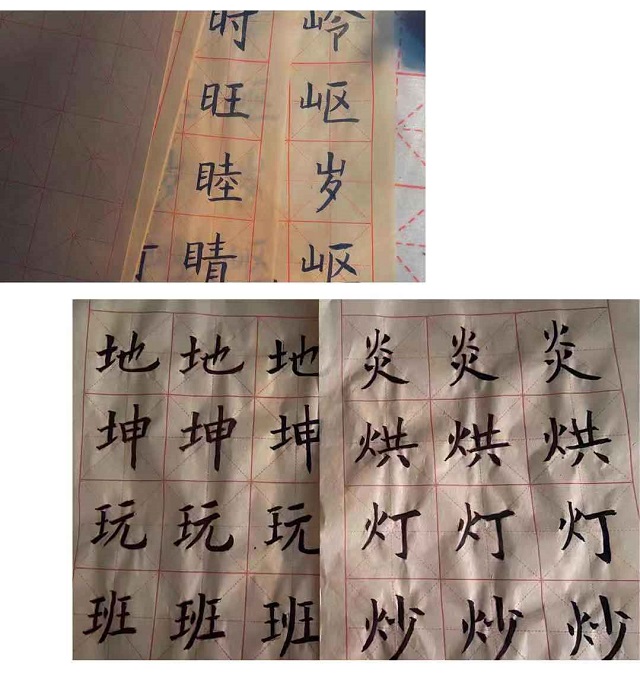 时 岭
旺 岖
睦 岁
晴 岖
地 地 地
坤 坤 坤
玩 玩 玩
班 班 班
炎 炎 炎
烘 烘 烘
灯 灯 灯
炒 炒 炒